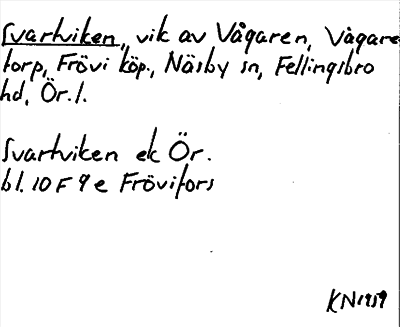 Svartviken, vik av Vågaren, Vågare
torp, Frövi köp., Näsby sn, Fellingsbro
hd, Ör.l.
Svartviken ek Ör.
bl. 10 F 9 e Frövifors
KN1959